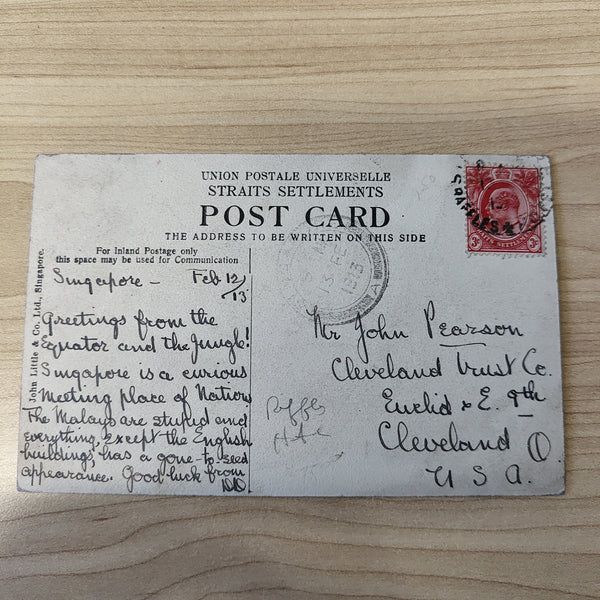 UNION POSTALE UNIVERSELLE
STRAITS SETTLEMENTS
POST CARD
THE ADDRESS TO BE WRITTEN ON THIS SIDE
For Inland Postage only
this space may be used for Communication
John Little & Co. Ltd., Singapore.
Singapore – Feb 12/13
Greetings from the
Equator and the Jungle!
Singapore is a curious
meeting place of Nations
The Malays are stupid and
everything, except the English
buildings has a gone-to-seed
appearance. Good luck from
Mr John Pearson
Cleveland Trust Co.
Euclid & E. 9th
Cleveland O
U S A.
Raffles
RAFFLES
3c 3c